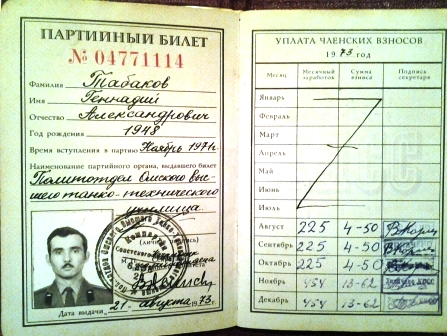 ПАРТИЙНЫЙ БИЛЕТ
№ 04771114
Фамилия Табаков
Имя Геннадий
Отчество Александрович
Год рождения 1948
Время вступления в партию Ноябрь 1971г.
Наименование партийного органа, выдавшего билет
Политотдел Омского выс-
шего танко-технического
училища
(личная подпись)
Дата выдачи 21 августа 1973г.
УПЛАТА ЧЛЕНСКИХ ВЗНОСОВ
1973 год
Месяц Месячный заработок Сумма взноса Подпись секретаря
Январь
Февраль
Март
Апрель
Май
Июнь
Июль
Август 225 4-50
Сентябрь 225 4-50
Октябрь 225 4-50
Ноябрь 454 13-62
Декабрь 454 13-62